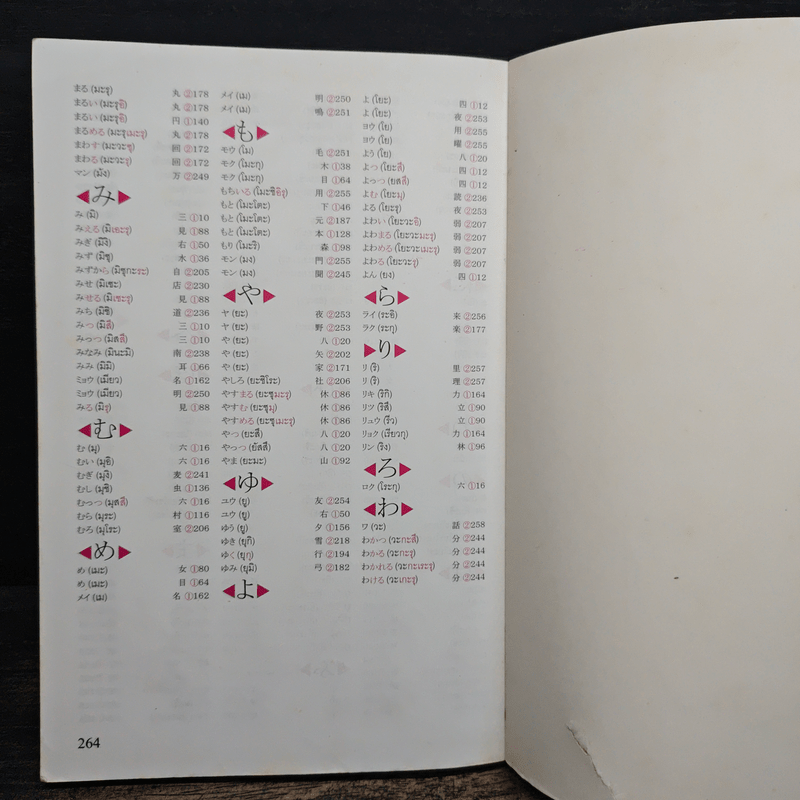 まる (มะรุ) 丸 ②178
まるい (มะรุอิ) 丸 ②178
まるい (มะรุอิ) 円 ①140
まるめる (มะรุเมะรุ) 丸 ②178
まわす (มะวะซุ) 回 ②172
まわる (มะวะรุ) 回 ②172
マン (มัง) 万 ②249
み
み (มิ) 三 ①10
みえる (มิเอะรุ) 見 ①88
みぎ (มิงิ) 右 ①50
みず (มิซุ) 水 ①36
みずから (มิซุกะระ) 自 ②205
みせ (มิเซะ) 店 ②230
みせる (มิเซะรุ) 見 ①88
みち (มิชิ) 道 ②236
みつ (มิสึ) 三 ①10
みっつ (มิสสึ) 三 ①10
みなみ (มินะมิ) 南 ②238
みみ (มิมิ) 耳 ①66
ミョウ (เมียว) 名 ①162
ミョウ (เมียว) 明 ②250
みる (มิรุ) 見 ①88
む
む (มุ) 六 ①16
むい (มุอิ) 六 ①16
むぎ (มุงิ) 麦 ②241
むし (มุชิ) 虫 ①136
むっつ (มุสสึ) 六 ①16
むら (มุระ) 村 ①116
むろ (มุโระ) 室 ②206
め
め (เมะ) 女 ①80
め (เมะ) 目 ①64
メイ (เม) 名 ①162
メイ (เม) 明 ②250
メイ (เม) 鳴 ②251
も
モウ (โม) 毛 ②251
モク (โมะกุ) 木 ①38
モク (โมะกุ) 目 ①64
もちいる (โมะชิอิรุ) 用 ②255
もと (โมะโตะ) 下 ①46
もと (โมะโตะ) 元 ②187
もと (โมะโตะ) 本 ①128
もり (โมะริ) 森 ①98
モン (มง) 門 ②255
モン (มง) 聞 ②245
や
ヤ (ยะ) 夜 ②253
ヤ (ยะ) 野 ②253
や (ยะ) 八 ①20
や (ยะ) 矢 ②202
や (ยะ) 家 ②171
やしろ (ยะชิโระ) 社 ②206
やすまる (ยะซุมะรุ) 休 ①86
やすむ (ยะซุมุ) 休 ①86
やすめる (ยะซุเมะรุ) 休 ①86
やつ (ยะสึ) 八 ①20
やっつ (ยัสสึ) 八 ①20
やま (ยะมะ) 山 ①92
ゆ
ユウ (ยู) 友 ②254
ユウ (ยู) 右 ①50
ゆう (ยู) 夕 ①156
ゆき (ยุกิ) 雪 ②218
ゆく (ยุกุ) 行 ②194
ゆみ (ยุมิ) 弓 ②182
よ
よ (โยะ) 四 ①12
よ (โยะ) 夜 ②253
ヨウ (โย) 用 ②255
ヨウ (โย) 曜 ②255
よう (โย) 八 ①20
よつ (โยะสึ) 四 ①12
よっつ (ยสสึ) 四 ①12
よむ (โยะมุ) 読 ②236
よる (โยะรุ) 夜 ②253
よわい (โยะวะอิ) 弱 ②207
よわまる (โยะวะมะรุ) 弱 ②207
よわめる (โยะวะเมะรุ) 弱 ②207
よわる (โยะวะรุ) 弱 ②207
よん (ยง) 四 ①12
ら
ライ (ระอิ) 来 ②256
ラク (ระกุ) 楽 ②177
り
リ (ริ) 里 ②257
リ (ริ) 理 ②257
リキ (ริกิ) 力 ①164
リツ (ริสึ) 立 ①90
リュウ (ริว) 立 ①90
リョク (เรียวกุ) 力 ①164
リン (ริง) 林 ①96
ろ
ロク (โระกุ) 六 ①16
わ
ワ (วะ) 話 ②258
わかつ (วะกะสึ) 分 ②244
わかる (วะกะรุ) 分 ②244
わかれる (วะกะเระรุ) 分 ②244
わける (วะเกะรุ) 分 ②244
264